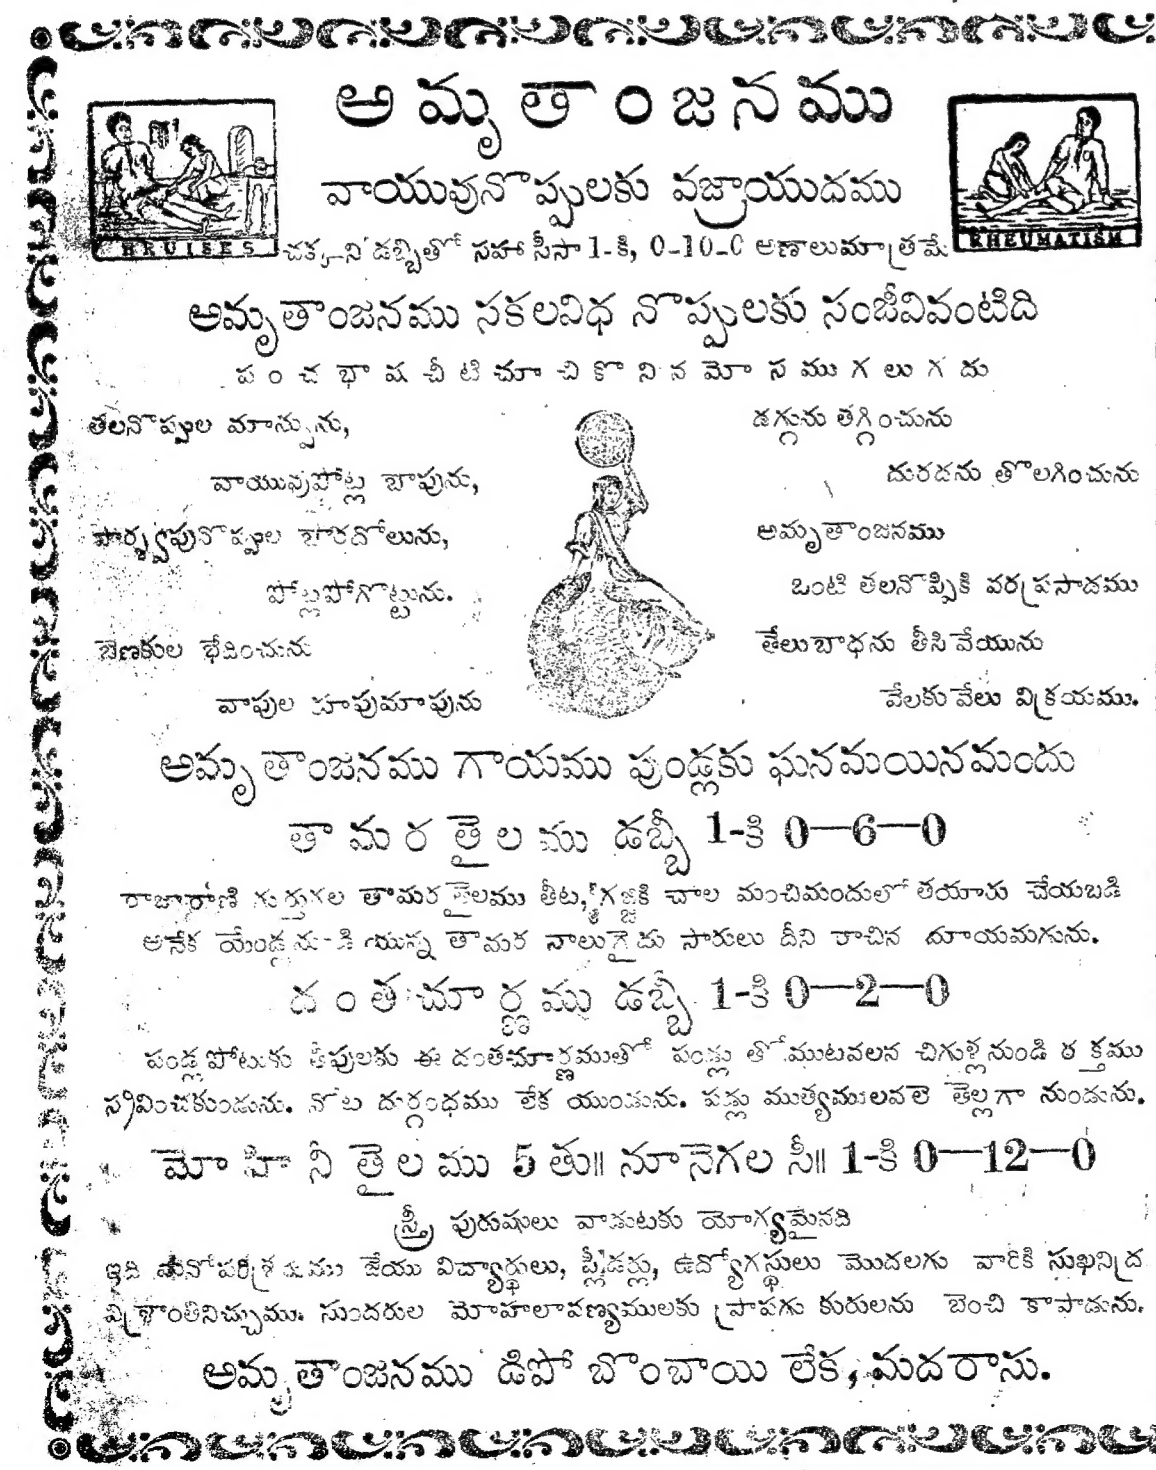 అమృతాంజనము
వాయువునొప్పులకు వజ్రాయుదము
BRUISES
RHEUMATISM
చక్కని డబ్బితో సహా సీసా 1-కి, 0-10-0 అణాలుమాత్రమే
అమృతాంజనము సకలవిధ నొప్పులకు సంజీవివంటిది
పంచభాషచీటిచూచికొనినమోసముగలుగదు
తలనొప్పుల మాన్పును,
వాయువుపోట్ల బాపును,
పార్శ్వపునొప్పుల బారదోలును,
పోట్లపోగొట్టును.
బెణకుల భేదించును
వాపుల రూపుమాపును
డగ్గును తగ్గించును
దురదను తొలగించును
అమృతాంజనము
ఒంటి తలనొప్పికి వరప్రసాదము
తేలుబాధను తీసివేయును
వేలకువేలు విక్రయము.
అమృతాంజనము గాయము పుండ్లకు ఘనమయినమందు
తామరతైలము డబ్బీ 1-కి 0—6—0
రాజారాణి గుర్తుగల తామర తైలము తీట, గజ్జికి చాల మంచిమందులతో తయారు చేయబడి
అనేక యేండ్లనుండి యున్న తామర నాలుగైదు సారులు దీని రాచిన మాయమగును.
దంతచూర్ణము డబ్బీ 1-కి 0—2—0
పండ్లపోటుకు తీపులకు ఈ దంతచూర్ణముతో పండ్లు తోముటవలన చిగుళ్లనుండి రక్తము
స్రవించకుండును. నోట దుర్గంధము లేక యుండును. పండ్లు ముత్యములవలె తెల్లగా నుండును.
మోహినీతైలము 5 తు॥ నూనెగల సీ॥ 1-కి 0—12—0
స్త్రీ పురుషులు వాడుటకు యోగ్యమైనది
ఇది మనోపరిశ్రమము జేయు విద్యార్థులు, ప్లీడర్లు, ఉద్యోగస్థులు మొదలగు వారికి సుఖనిద్ర
విశ్రాంతినిచ్చును. సుందరుల మోహలావణ్యములకు ప్రాపగు కురులను బెంచి కాపాడును.
అమృతాంజనము డిపో బొంబాయి లేక, మదరాసు.